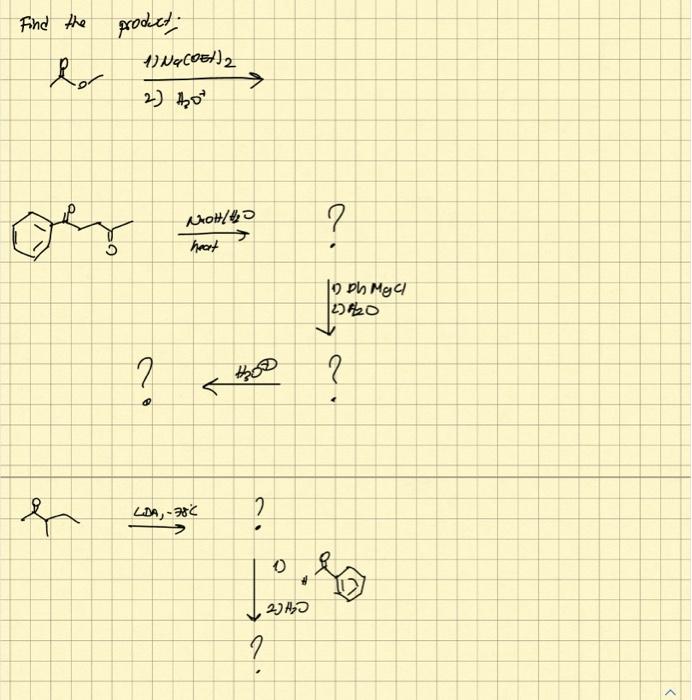 Find the product:
1) Na(OEt)2
O
O
2) H3O+
O
NaOH/H2O
?
heat
O
1) PhMgCl
2) H2O
?
H3O⊕
?
O
LDA, -78°C
?
1)
O
H
2) H2O
?